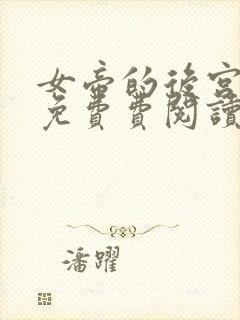 女帝的後宮
免費費閱讀
潘躍